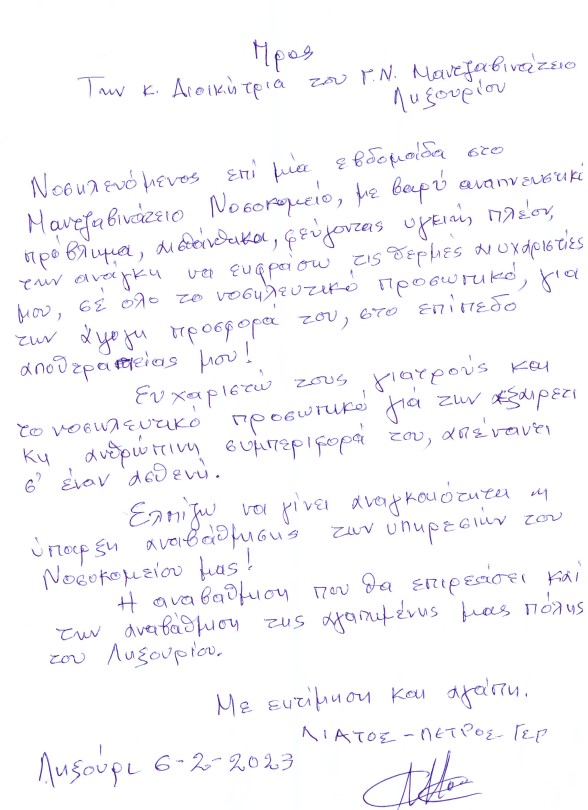 Προς
Την κ. Διοικήτρια του Γ.Ν. Μαντζαβινάτειο
Ληξουρίου
Νοσηλευόμενος επί μία εβδομάδα στο
Μαντζαβινάτειο Νοσοκομείο, με βαρύ αναπνευστικό
πρόβλημα, αισθάνθηκα, φεύγοντας υγιής πλέον,
την ανάγκη να εκφράσω τις θερμές ευχαριστίες
μου, σέ όλο το νοσηλευτικό προσωπικό, για
την άψογη προσφορά του, στο επίπεδο
αποθεραπείας μου!
Ευχαριστώ τους γιατρούς και
το νοσηλευτικό προσωπικό γιά την εξαιρετι
κη ανθρώπινη συμπεριφορά του, απέναντι
σ' έναν ασθενή.
Ελπίζω να γίνει αναγκαιότητα η
ύπαρξη αναβάθμισης των υπηρεσιών του
Νοσοκομείου μας!
Η αναβάθμιση που θα επιρεάσει καί
την αναβάθμιση της αγαπημένης μας πόλης
του Ληξουρίου.
Με εκτίμηση και αγάπη.
ΛΙΑΤΟΣ - ΠΕΤΡΟΣ ΓΕΡ
Ληξούρι 6-2-2023